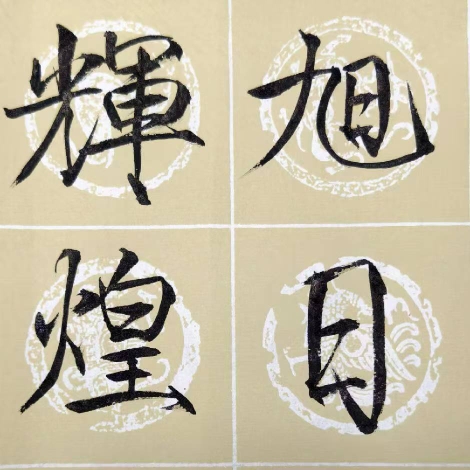 旭日
輝煌